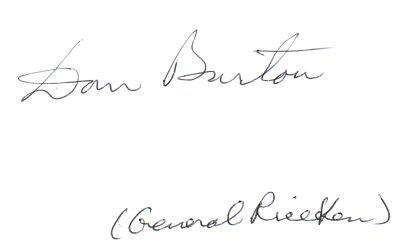 Dan Burton
(General Rieekan)